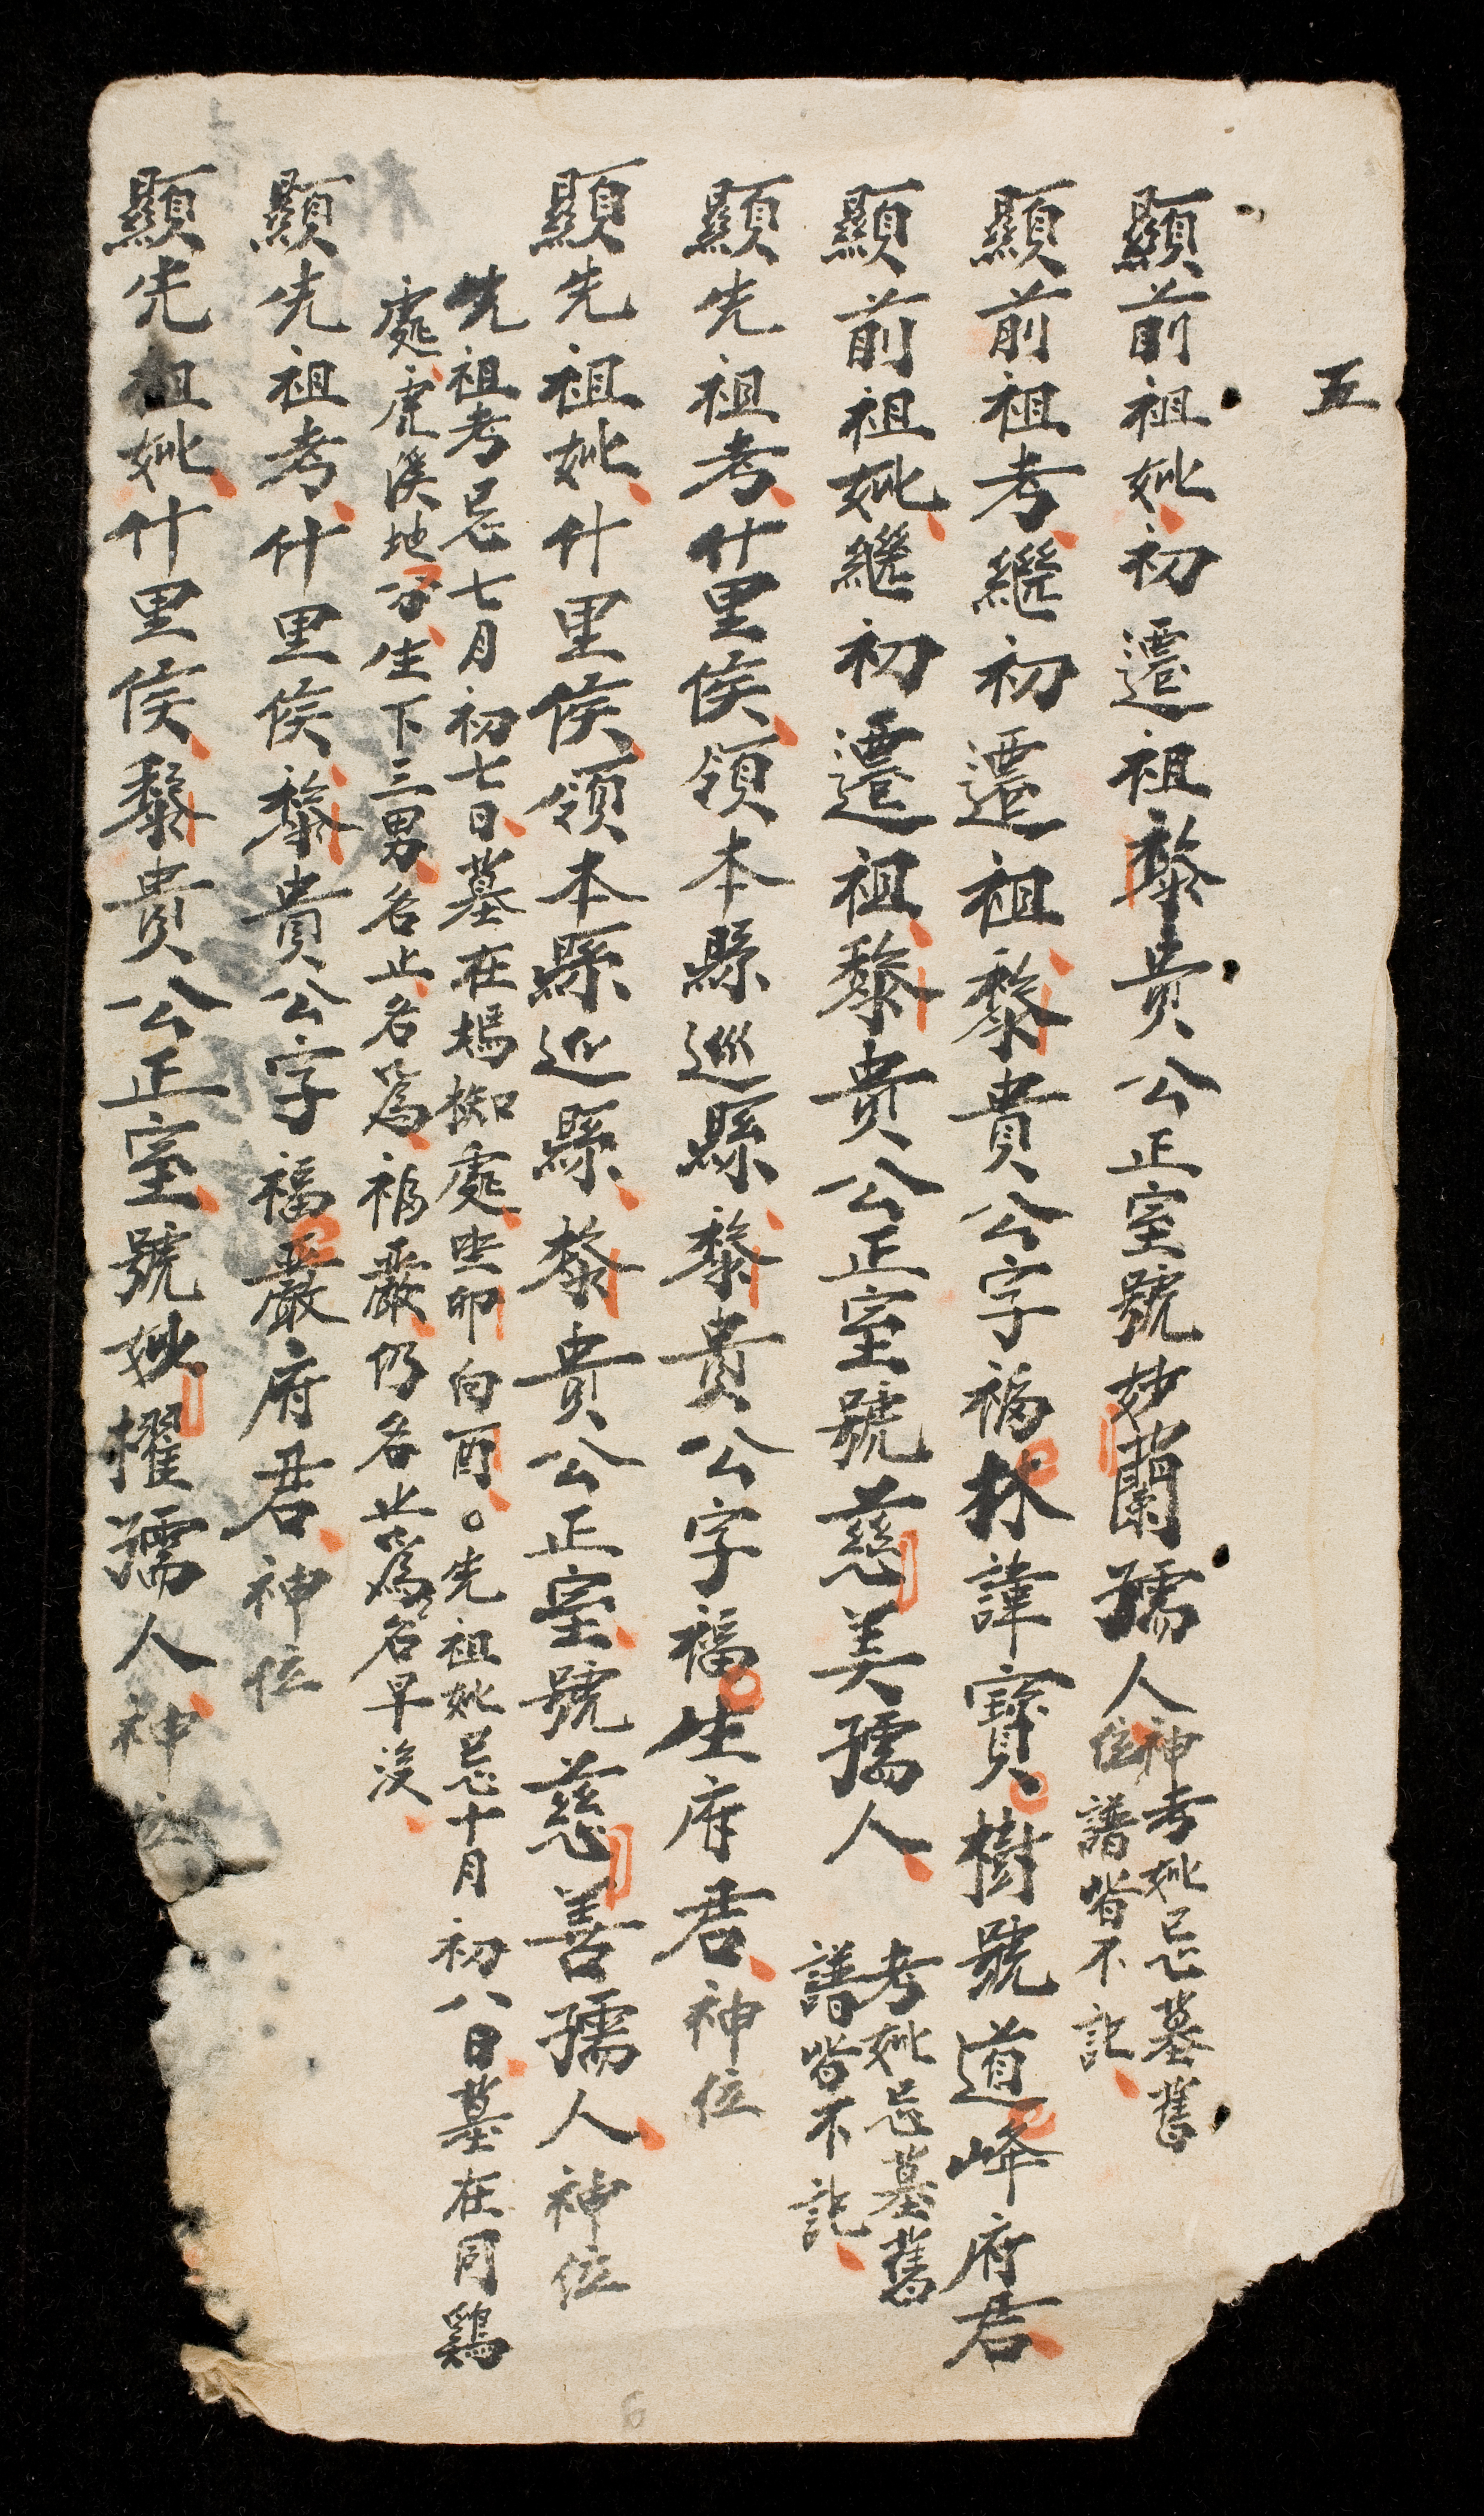 五
顯前祖妣初遷祖黎貴公正室號妙蘭孺人神位
考妣忌墓舊
譜皆不記
顯前祖考繼初遷祖黎貴公字福林諱寶樹號道峰府君
顯前祖妣繼初遷祖黎貴公正室號慈美孺人
考妣忌墓舊
譜皆不記
顯先祖考什里侯領本縣巡縣黎貴公字福生府君神位
顯先祖妣什里侯領本縣巡縣黎貴公正室號慈善孺人神位
先祖考忌七月初七日墓在塢椥處坐卯向酉。先祖妣忌十月初八日墓在同鷄
處虎溪地分生下三男名止名為福嚴仍名並為名早没
顯先祖考什里侯黎貴公字福嚴府君神位
顯先祖妣什里侯黎貴公正室號妙擢孺人神位
6